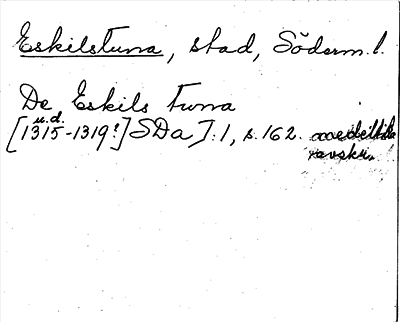 Eskilstuna, stad, Söderm. l.
De Eskils tuna
u.d.
[1315-1319?] SDa I: 1, s. 162.